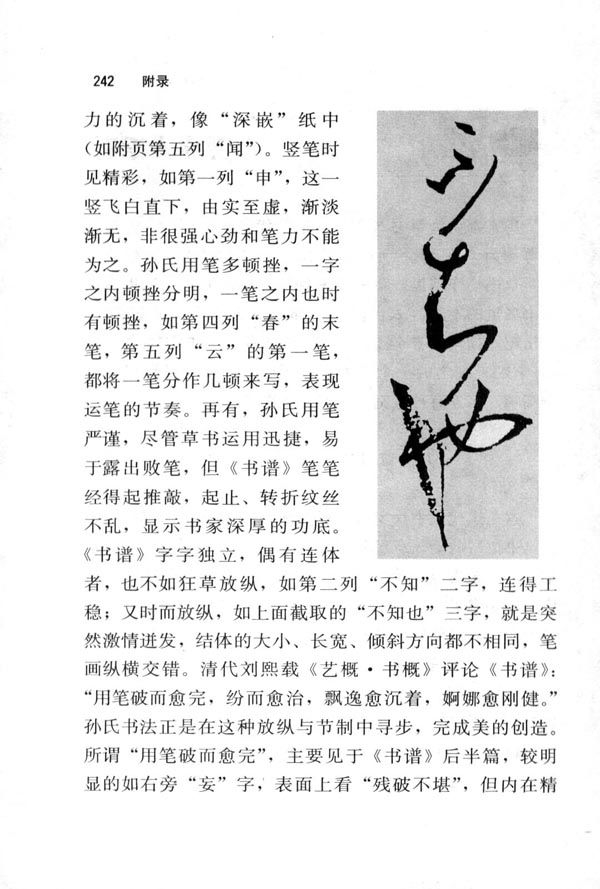 242 附录
力的沉着，像“深嵌”纸中
(如附页第五列“闻”)。竖笔时
见精彩，如第一列“申”，这一
竖飞白直下，由实至虚，渐淡
渐无，非很强心劲和笔力不能
为之。孙氏用笔多顿挫，一字
之内顿挫分明，一笔之内也时
有顿挫，如第四列“春”的末
笔，第五列“云”的第一笔，
都将一笔分作几顿来写，表现
运笔的节奏。再有，孙氏用笔
严谨，尽管草书运用迅捷，易
于露出败笔，但《书谱》笔笔
经得起推敲，起止、转折纹丝
不乱，显示书家深厚的功底。
《书谱》字字独立，偶有连体
者，也不如狂草放纵，如第二列“不知”二字，连得工
稳；又时而放纵，如上面截取的“不知也”三字，就是突
然激情迸发，结体的大小、长宽、倾斜方向都不相同，笔
画纵横交错。清代刘熙载《艺概·书概》评论《书谱》：
“用笔破而愈完，纷而愈治，飘逸愈沉着，婀娜愈刚健。”
孙氏书法正是在这种放纵与节制中寻步，完成美的创造。
所谓“用笔破而愈完”，主要见于《书谱》后半篇，较明
显的如右旁“妄”字，表面上看“残破不堪”，但内在精
不知也